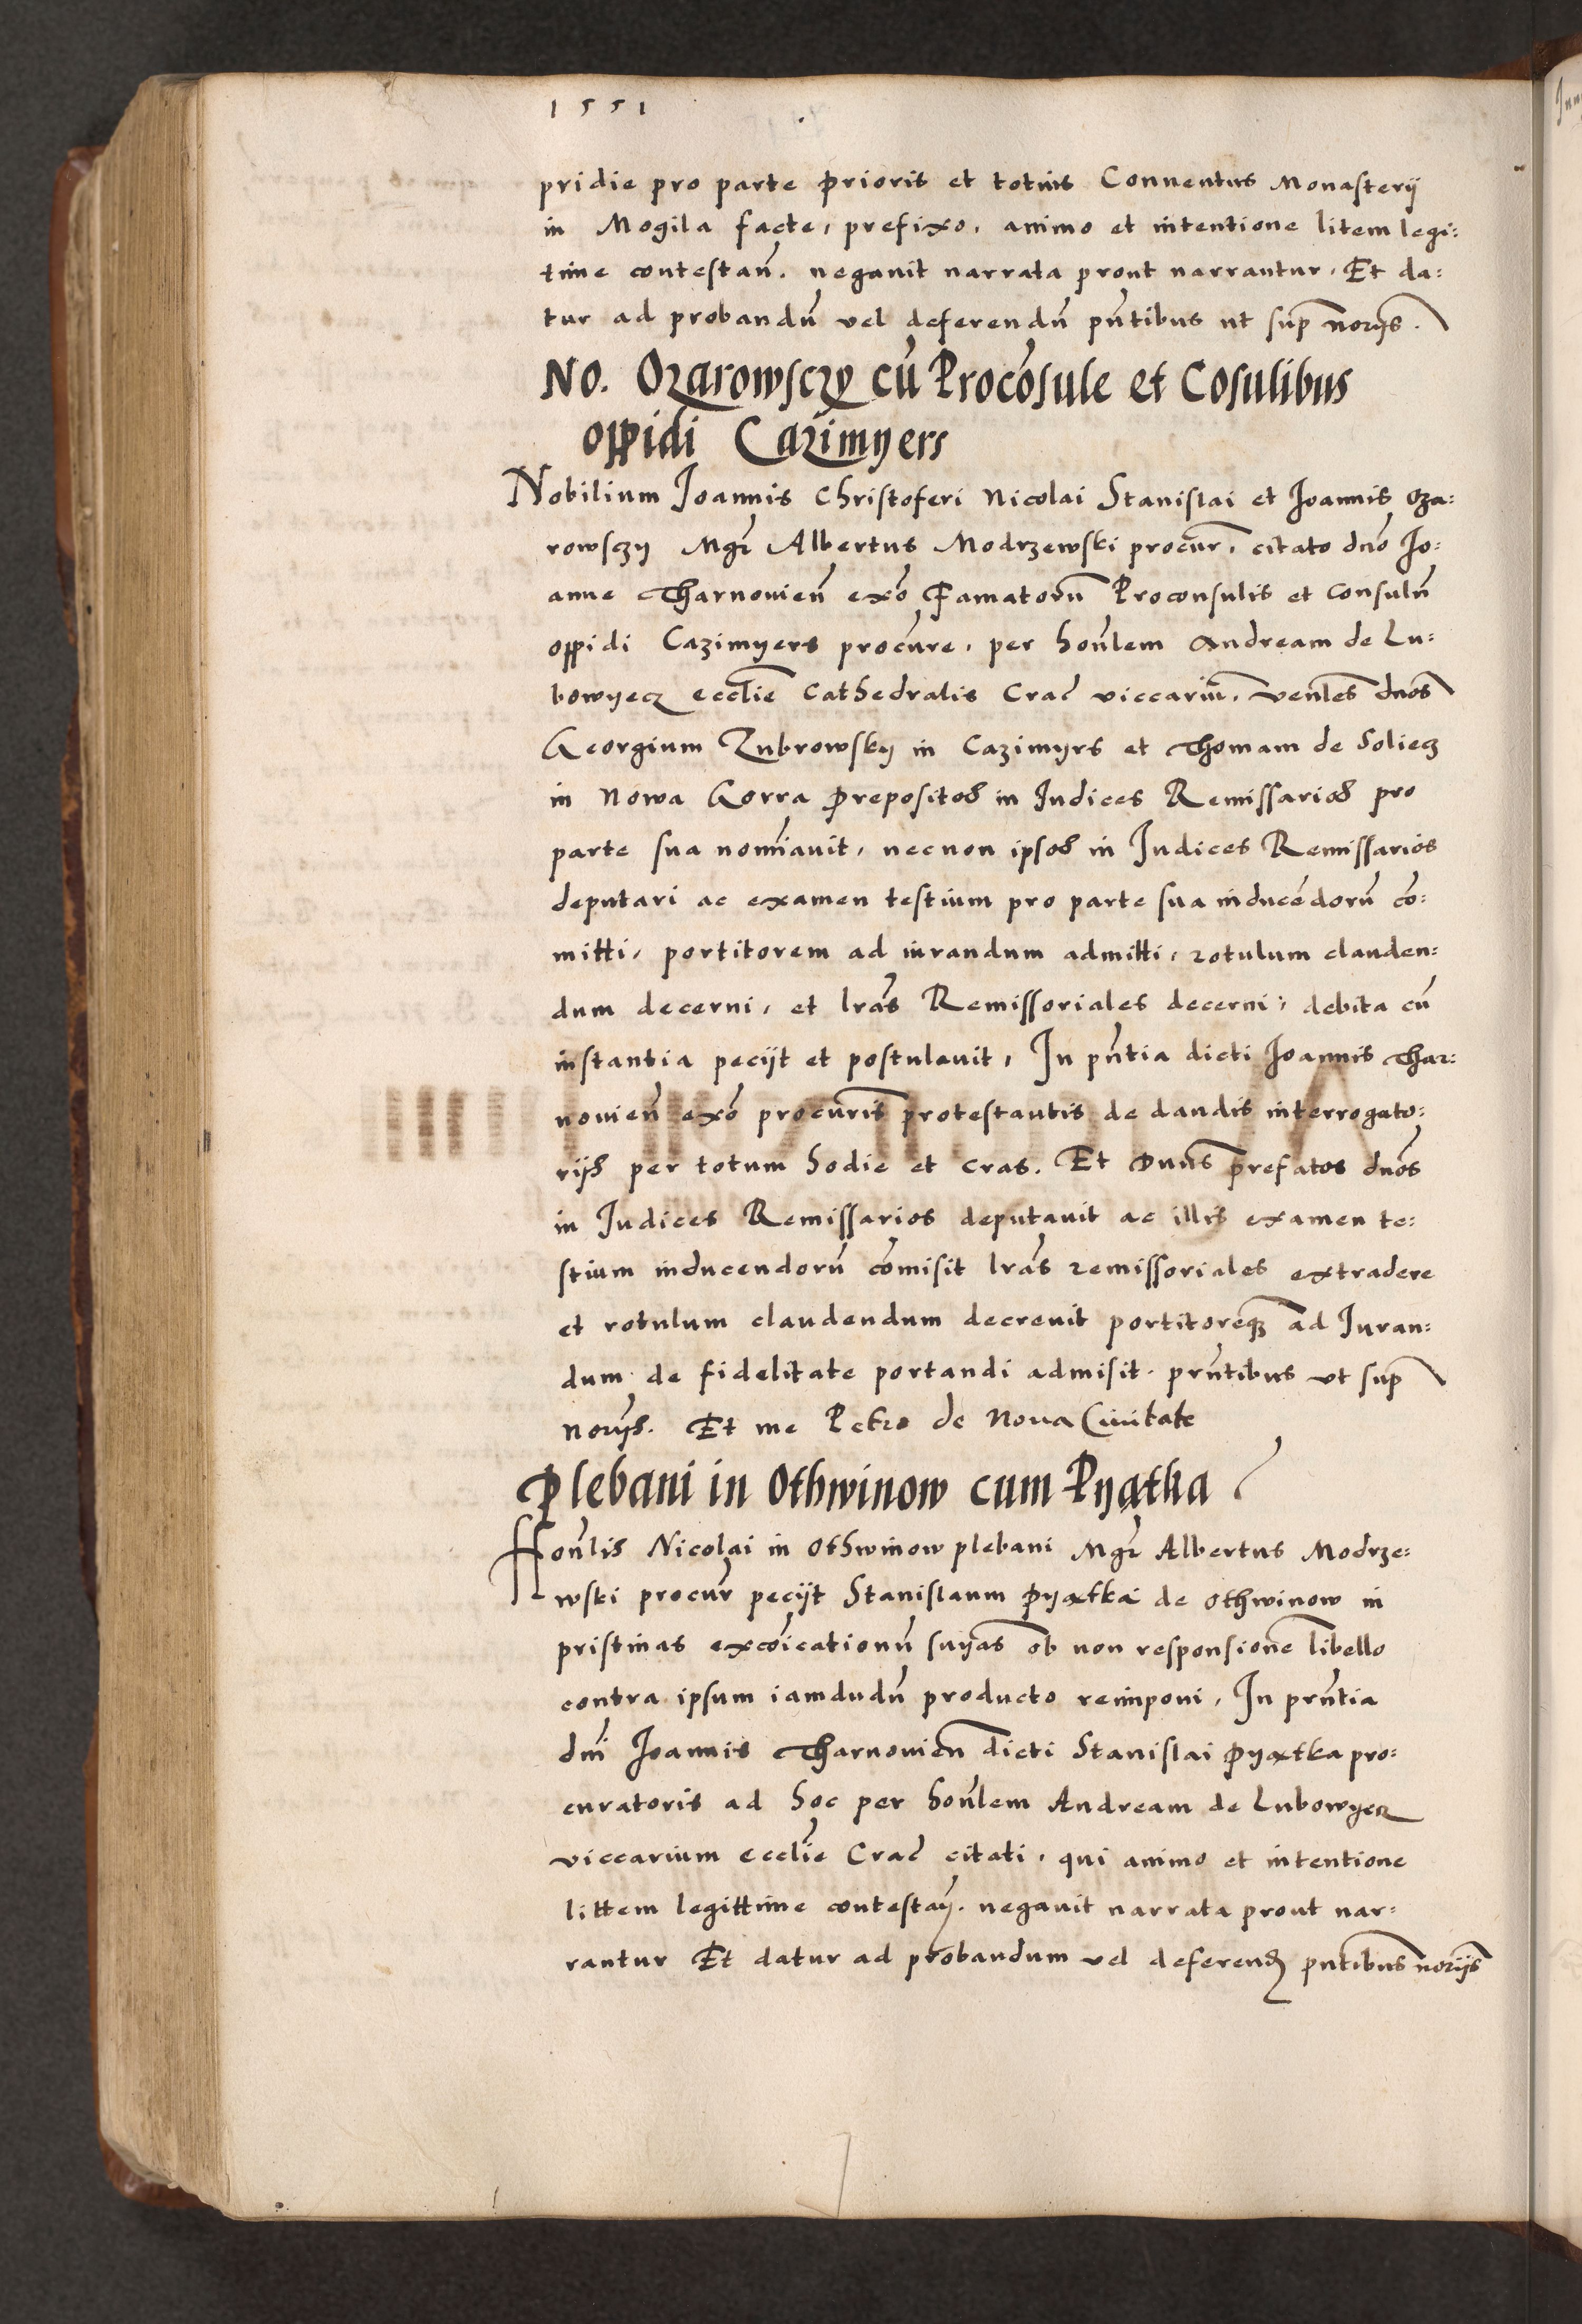 1551
pridie pro parte prioris et totius Conuentus Monasterij
in Mogila facte, prefixo, animo et intentione litem legi:
time contestań. negauit narrata prout narrantur, Et da:
tur ad probandū vel deferendū pn̄tibus ut sup̄ norijs.
No. Ozarowsczy cū Procōsule et Cōsulibus
oppidi Cazimyers
Nobilium Joannis Christoferi Nicolai Stanislai et Joannis Oza:
rowsczy Mgr̄ Albertus Modrzewski procur̄. citato dnō Jo:
anne Tharnovień exō Famatorū Proconsulis et Consulū
oppidi Cazimyers procūre, per hon̄lem Andream de Lu:
bowyecz eccl̄ie Cathedralis Crac̄ viccariū, ven̄les dnōs
Georgium Zubrowsky in Cazimyrs et Thomam de Soliecz
in Nowa Gorra prepositos in Judices Remissarios pro
parte sua nomīauit, necnon ipsos in Judices Remissarios
deputari ac examen testium pro parte sua inducēdorū cō:
mitti, portitorem ad iurandum admitti, rotulum clauden:
dum decerni, et lrās Remissoriales decerni, debita cū
instantia pecijt et postulauit, In pn̄tia dicti Joannis Thar:
novień exō procūris protestantis de dandis interrogato:
rijs per totum hodie et cras. Et Dnūs prefatos dnōs
in Judices Remissarios deputauit ac illis examen te:
stium inducendorū cōmisit lrās remissoriales extradere
et rotulum claudendum decreuit portitoreqꝫ ad Juran:
dum de fidelitate portandi admisit. prn̄tibus vt sup̄
norijs. Et me Petro de Noua Ciuitate
Plebani in Othwinow cum Pyatka
Hon̄lis Nicolai in Othwinow plebani Mgr̄ Albertus Modrze:
wski procur̄ pecijt Stanislaum Pyatka de Othwinow in
pristinas excōicationū suyas ob non responsionē libello
contra ipsum iamdudū producto reimponi, In prn̄tia
dn̄i Joannis Tharnovień dicti Stanislai Pyatka pro:
curatoris ad hoc per hon̄lem Andream de Lubowyecz
viccarium eccl̄ie Crac̄ citati, qui animo et intentione
littem legittime contestań. negauit narrata prout nar:
rantur Et datur ad probandum vel deferend̄ pn̄tibus norijs